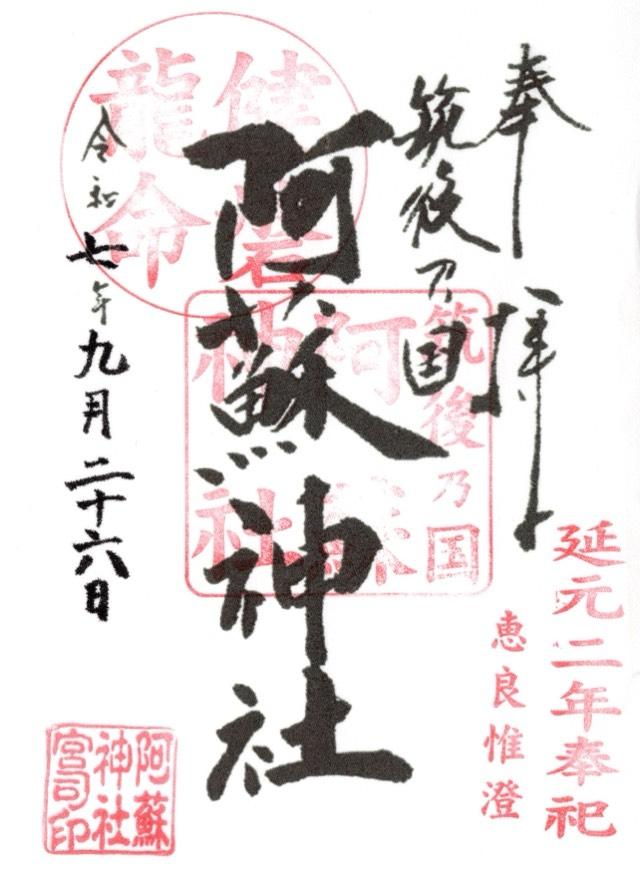 奉拝
筑後乃国
阿蘇神社
令和七年九月二十六日
健磐
龍命
筑後乃国
阿蘇
神社
延元二年奉祀
恵良惟澄
阿蘇
神社
宮司印